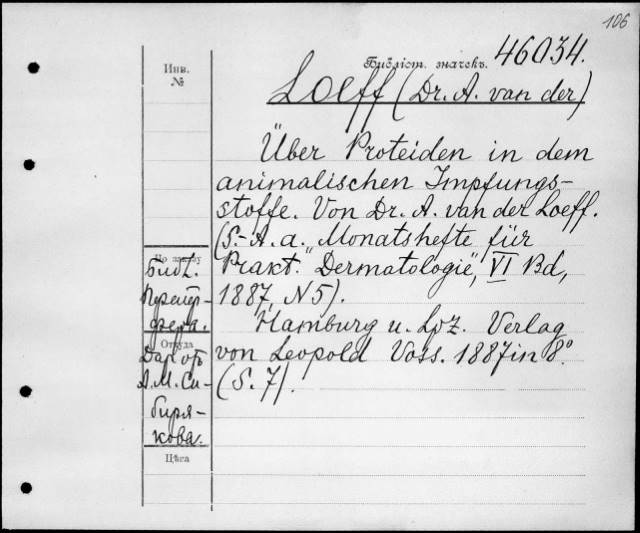 106
Библіот. значекъ. 46034.
Инв.
№
Loeff (Dr. A. van der)
Über Proteiden in dem
animalischen Impfungs-
stoffe. Von Dr. A. van der Loeff.
(S.-A. a. „Monatshefte für
Prakt. Dermatologie", VI Bd,
1887, N 5).
Hamburg u. Lpz. Verlag
von Leopold Voss. 1887 in 8°.
(S. 7).
По заказу
Библ.
Откуда
Даръ отъ
А. М. Си-
биря-
кова.
Цѣна